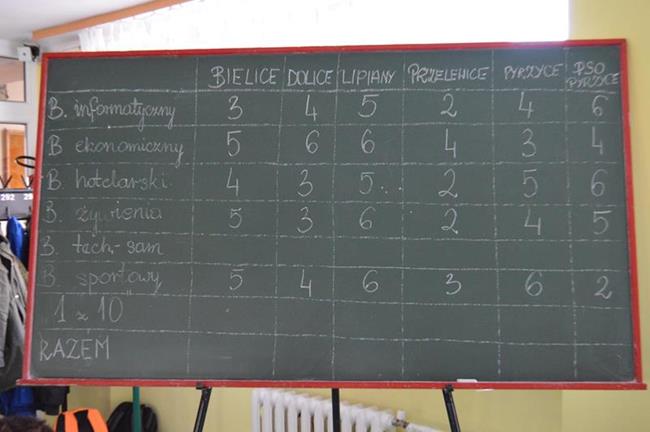 BIELICE DOLICE LIPIANY PRZELEWICE PYRZYCE PSO PYRZYCE
B. informatyczny 3 4 5 2 4 6
B ekonomiczny 5 6 6 4 3 4
B. hotelarski 4 3 5 2 5 6
B. żywienia 5 3 6 2 4 5
B. tech-sam
B. sportowy 5 4 6 3 6 2
1 z 10
RAZEM
292